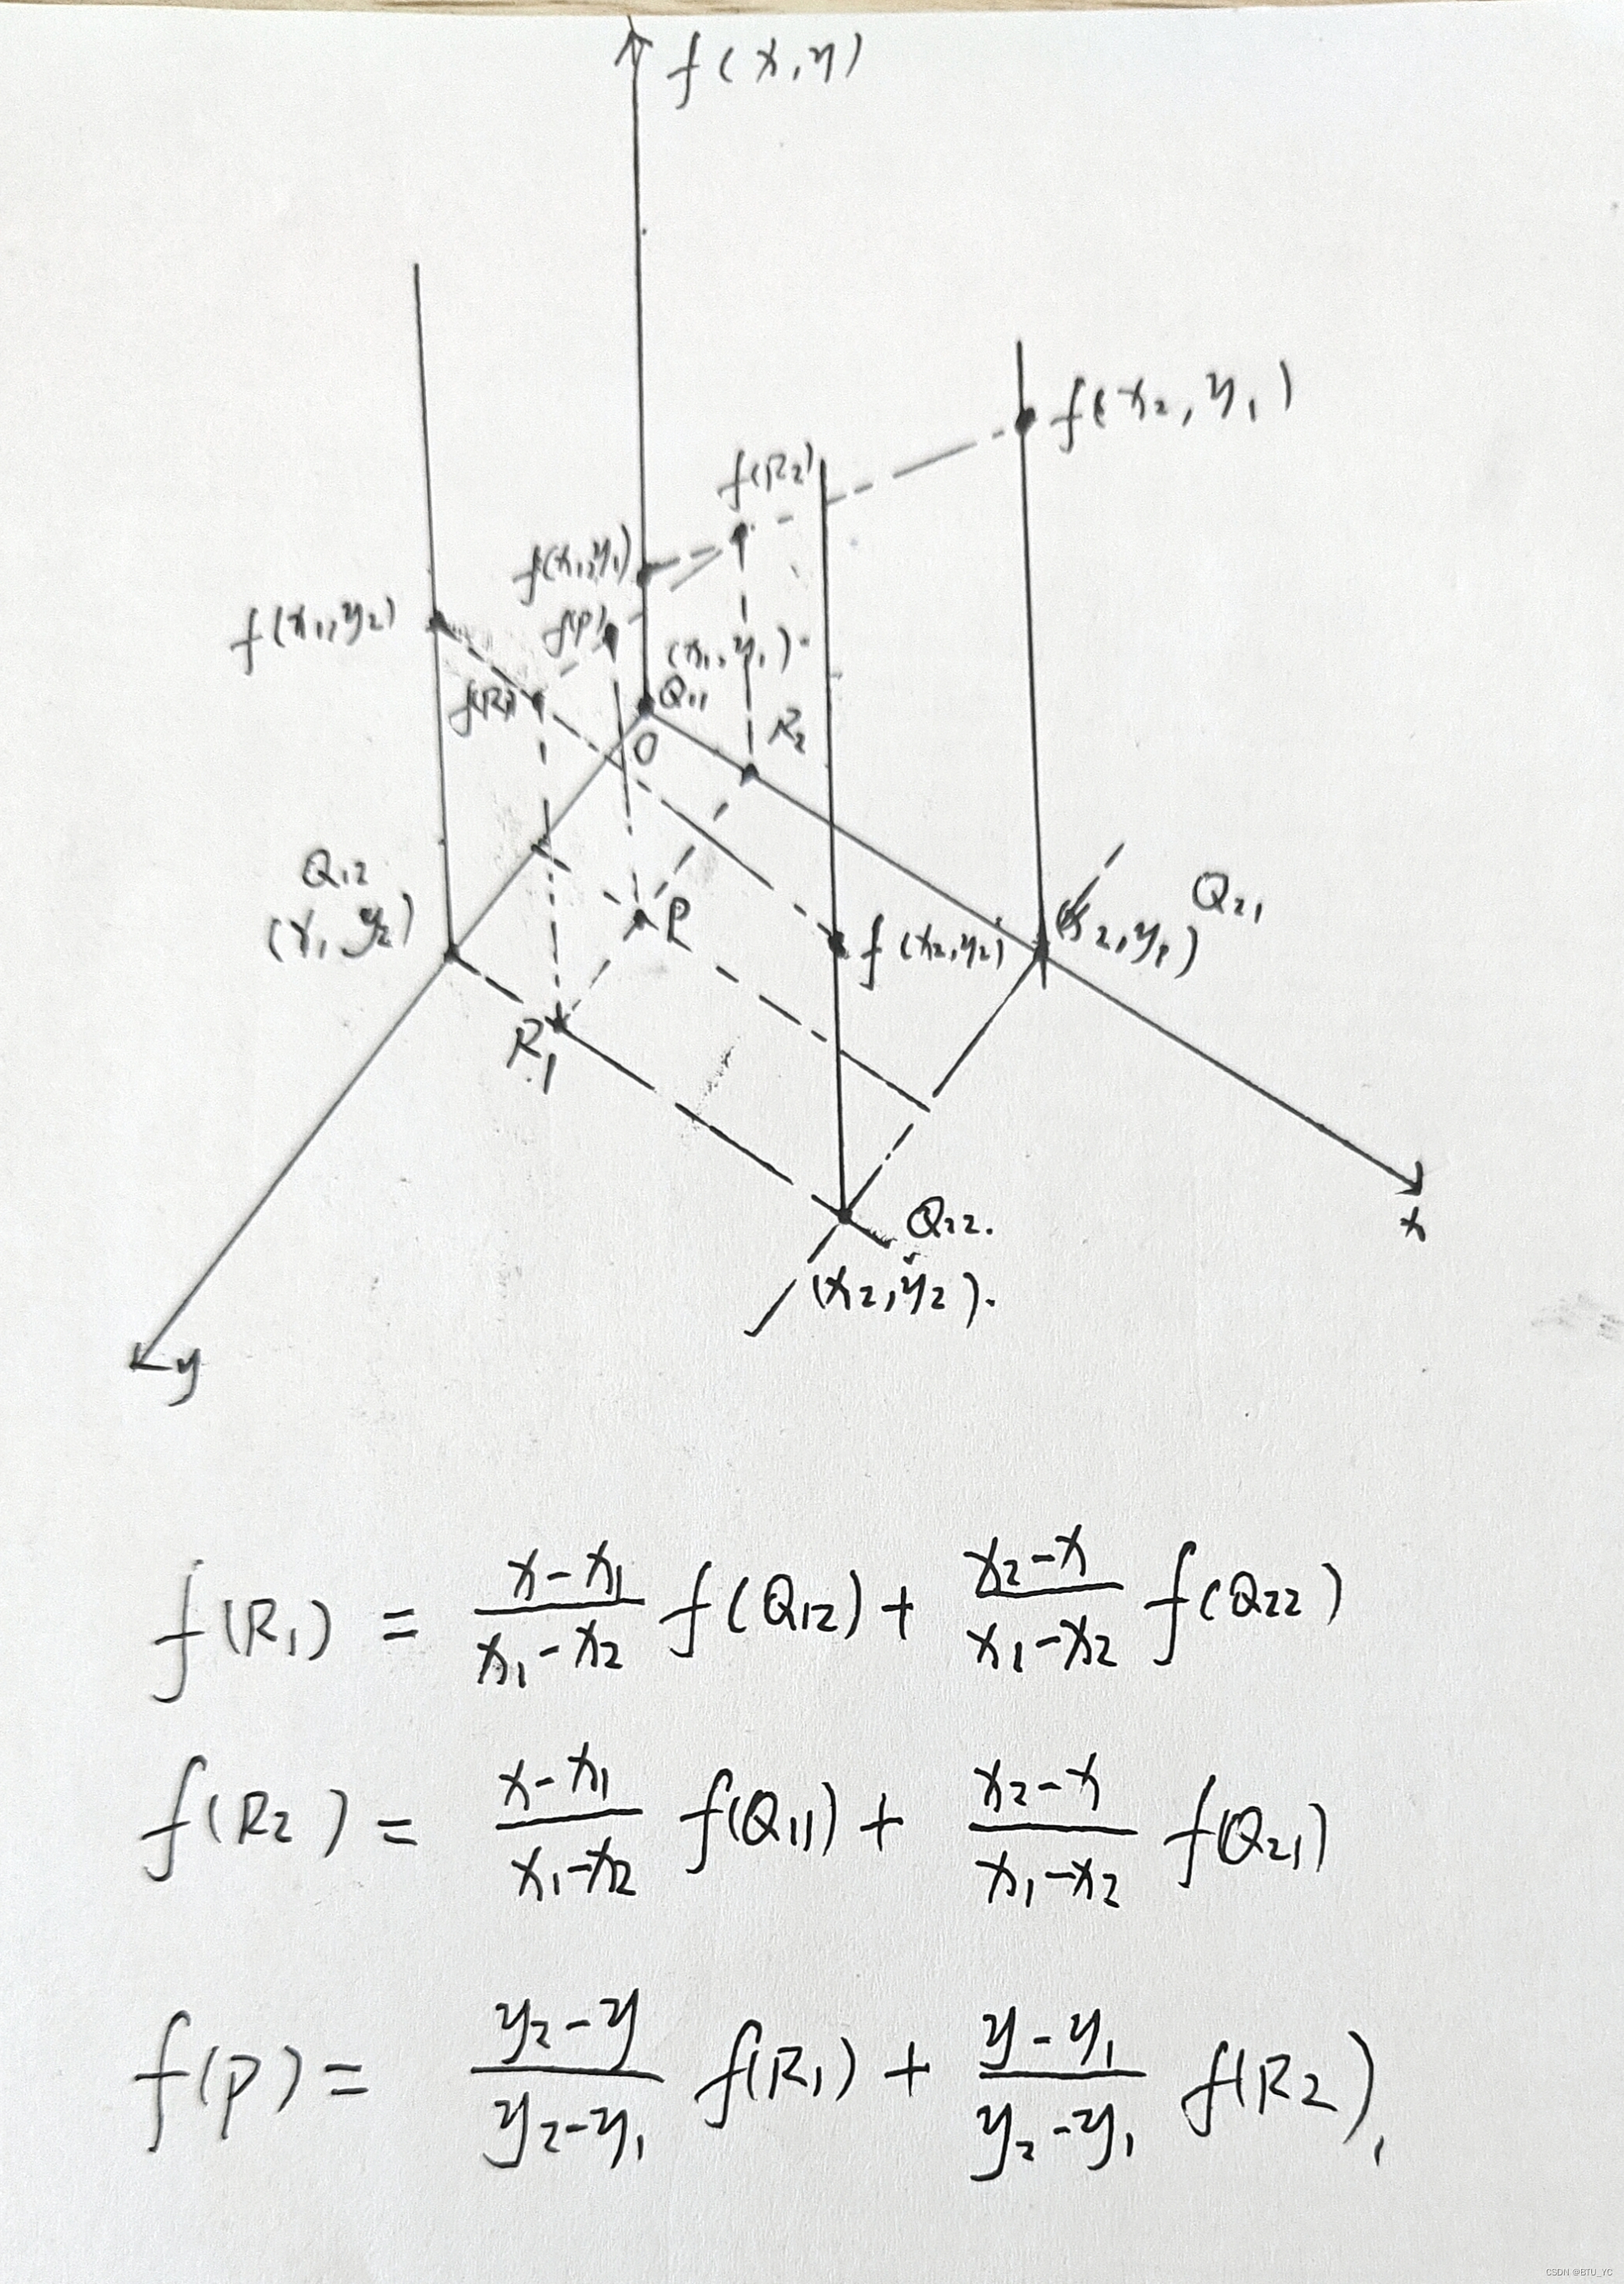 f(x,y)
f(x₂,y₁)
f(R₂)
f(x₁,y₁)
f(x₁,y₂)
f(P)
(x₁,y₁)
f(R₁)
Q₁₁
R₂
O
Q₁₂
(x₁ y₂)
P
f(x₂,y₂)
(x₂,y₁)
Q₂₁
R₁
Q₂₂.
(x₂,y₂).
x
y
f(R₁) = \frac{x-x₁}{x₁-x₂} f(Q₁₂) + \frac{x₂-x}{x₁-x₂} f(Q₂₂)
f(R₂) = \frac{x-x₁}{x₁-x₂} f(Q₁₁) + \frac{x₂-x}{x₁-x₂} f(Q₂₁)
f(P) = \frac{y₂-y}{y₂-y₁} f(R₁) + \frac{y-y₁}{y₂-y₁} f(R₂),
CSDN @BTU_YC